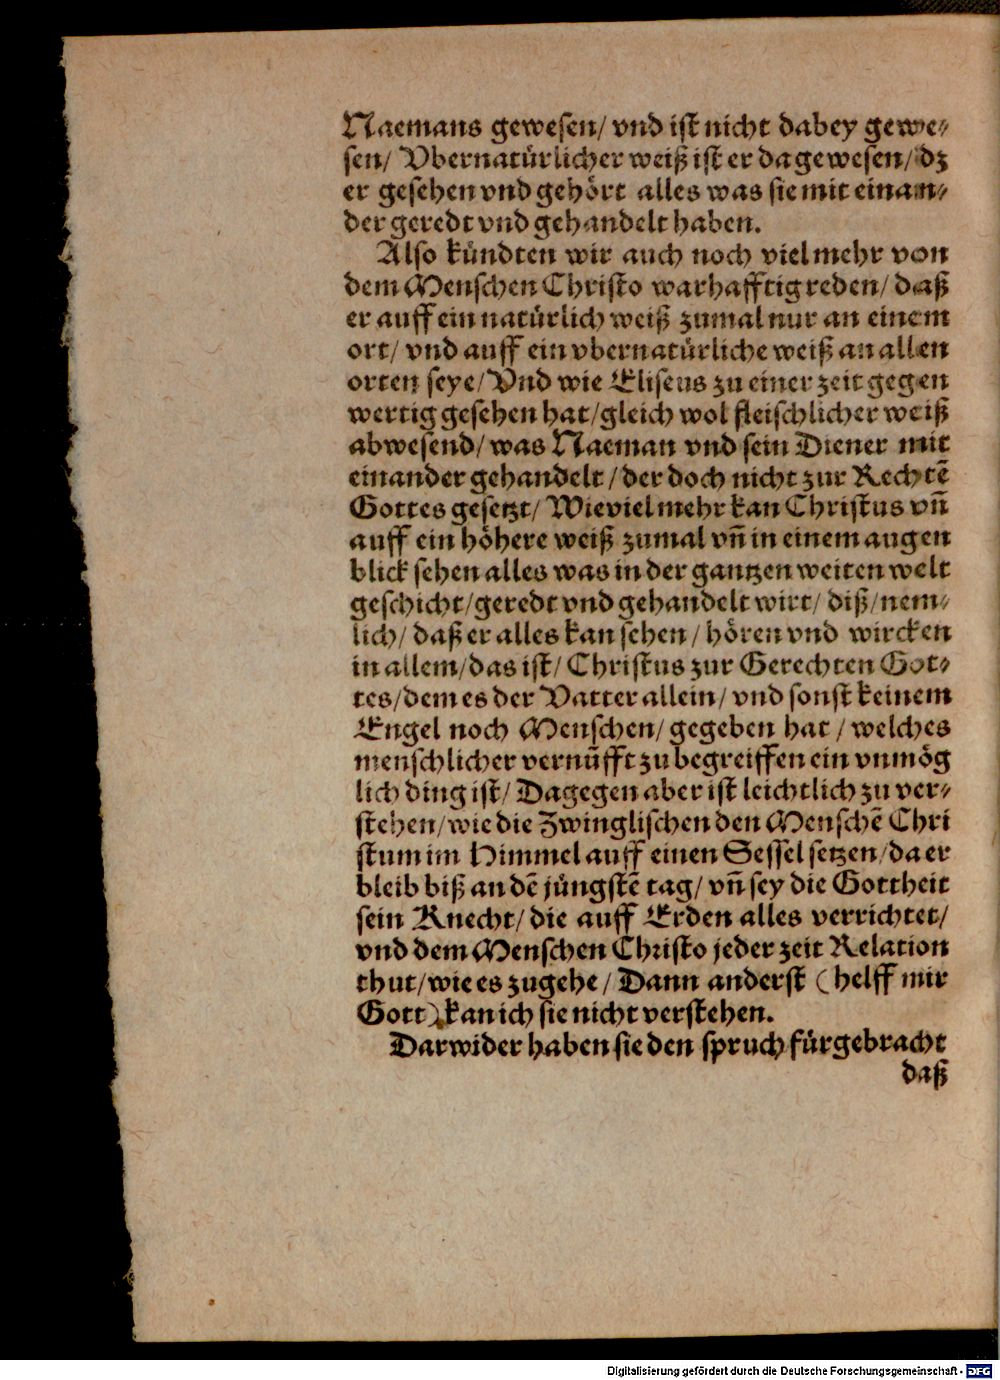 Naemans gewesen/ vnd ist nicht dabey gewe-
sen/ Vbernatürlicher weiß ist er da gewesen/ dz
er gesehen vnd gehört alles was sie mit einan-
der geredt vnd gehandelt haben.
Also kündten wir auch noch viel mehr von
dem Menschen Christo warhafftig reden/ daß
er auff ein natürlich weiß zumal nur an einem
ort/ vnd auff ein vbernatürliche weiß an allen
orten seye/ Vnd wie Eliseus zu einer zeit gegen
wertig gesehen hat/ gleich wol fleischlicher weiß
abwesend/ was Naeman vnd sein Diener mit
einander gehandelt/ der doch nicht zur Rechtē
Gottes gesetzt/ Wieviel mehr kan Christus vñ
auff ein höhere weiß zumal vñ in einem augen
blick sehen alles was in der gantzen weiten welt
geschicht/ geredt vnd gehandelt wirt/ diß/ nem-
lich/ daß er alles kan sehen/ hören vnd wircken
in allem/ das ist/ Christus zur Gerechten Got-
tes/ dem es der Vatter allein/ vnd sonst keinem
Engel noch Menschen/ gegeben hat/ welches
menschlicher vernūfft zu begreiffen ein vnmög
lich ding ist/ Dagegen aber ist leichtlich zu ver-
stehen/ wie die Zwinglischen den Menschē Chri
stum im Himmel auff einen Sessel setzen/ da er
bleib biß an dē jüngstē tag/ vñ sey die Gottheit
sein Knecht/ die auff Erden alles verrichtet/
vnd dem Menschen Christo jeder zeit Relation
thut/ wie es zugehe/ Dann anderst (helff mir
Gott) kan ich sie nicht verstehen.
Darwider haben sie den spruch fürgebracht
daß
Digitalisierung gefördert durch die Deutsche Forschungsgemeinschaft - DFG